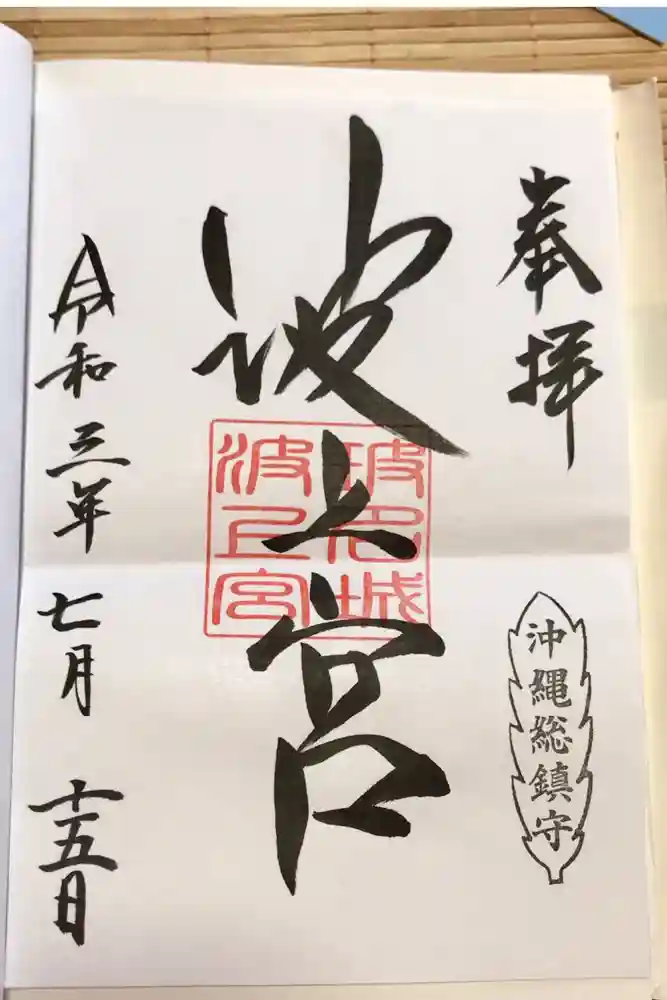 奉拝
沖縄総鎮守
波上宮
玻名城
波上宮
令和三年七月十五日